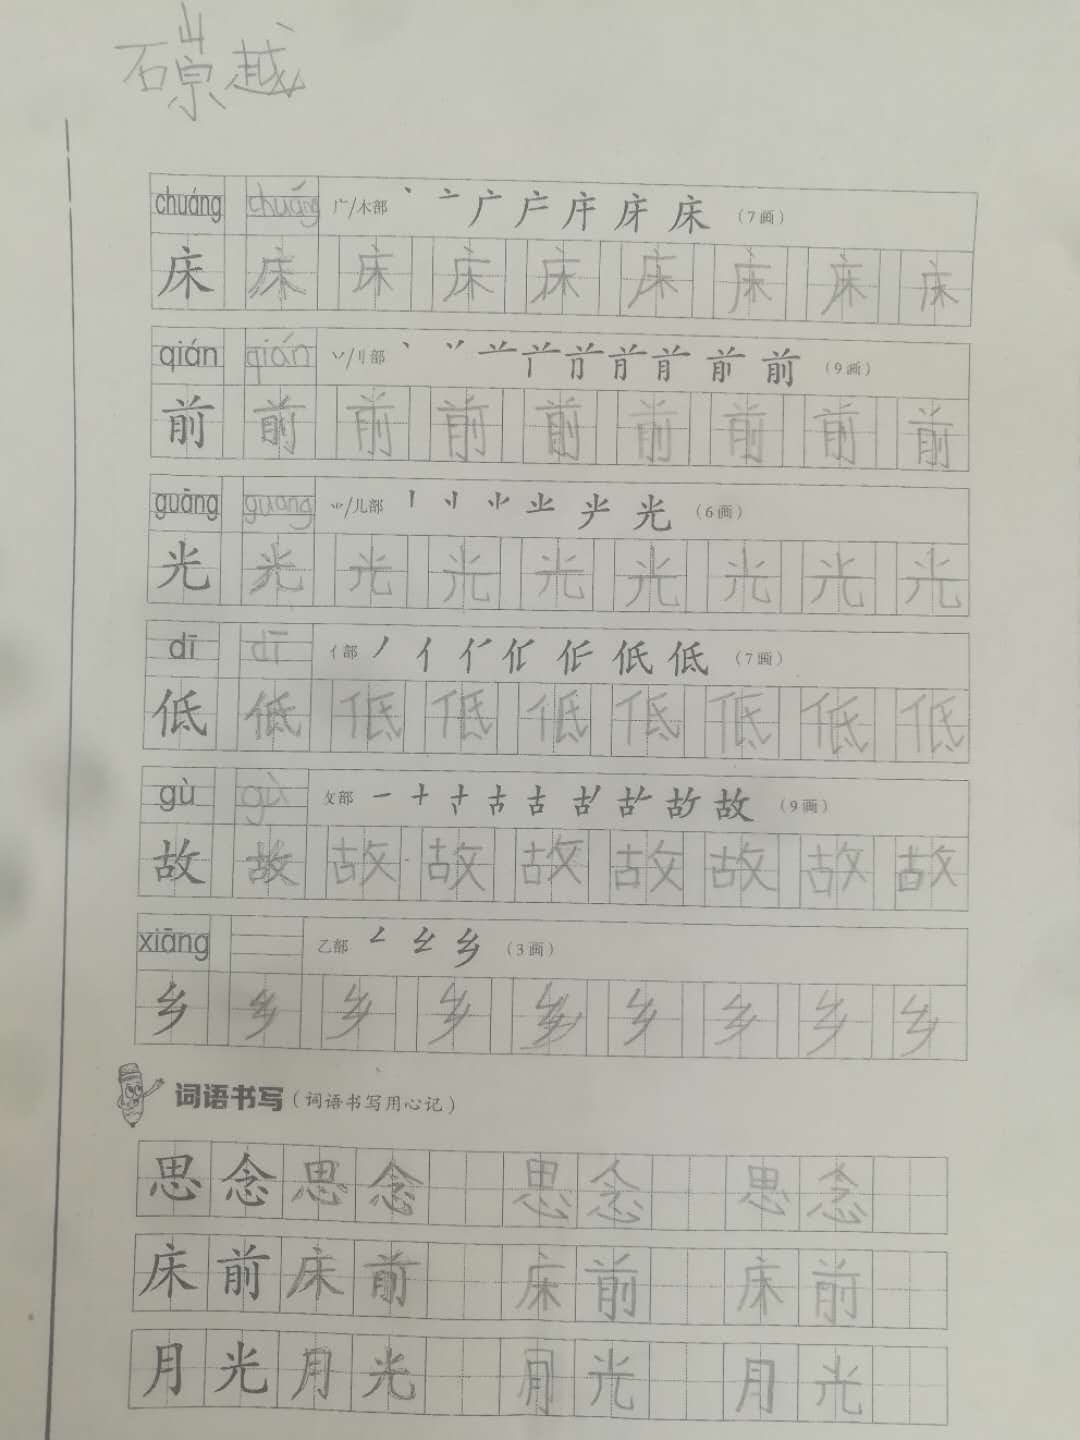 石崇越
chuáng chuáng 广/木部 （7画）
床 床 床 床 床 床 床 床 床
qián qián 丷/刂部 前 （9画）
前 前 前 前 前 前 前 前 前
guāng guang ⺌/儿部 光 （6画）
光 光 光 光 光 光 光 光 光
dī dī 亻部 丿 亻 低 低 （7画）
低 低 低 低 低 低 低 低 低
gù gù 攵部 一 十 古 古 故 （9画）
故 故 故 故 故 故 故 故 故
xiāng 乙部 乡 （3画）
乡 乡 乡 乡 乡 乡 乡 乡 乡
词语书写（词语书写用心记）
思 念 思 念 思 念 思 念
床 前 床 前 床 前 床 前
月 光 月 光 月 光 月 光